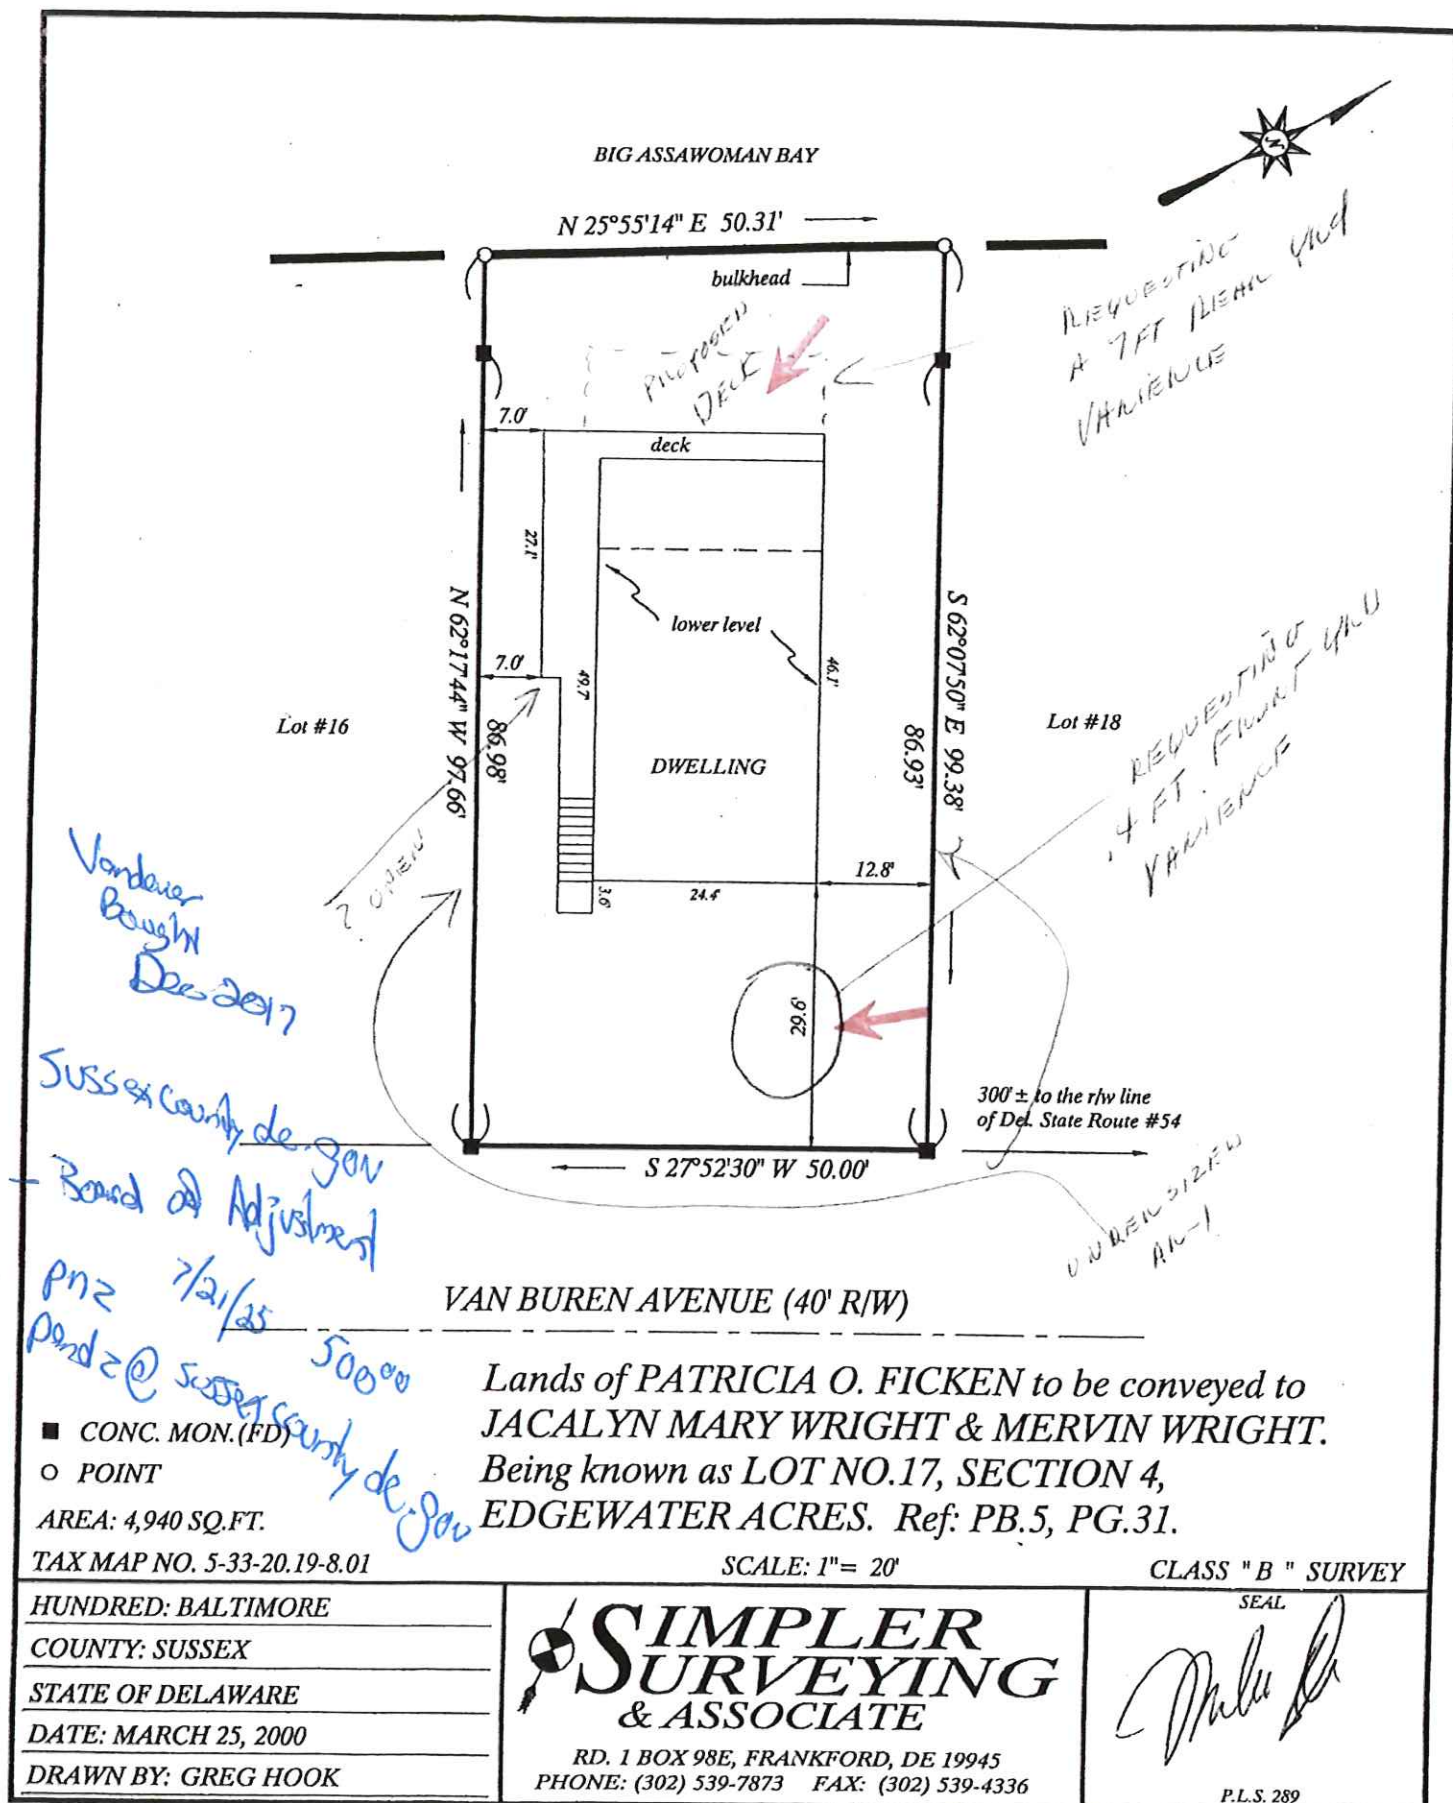 BIG ASSAWOMAN BAY
N 25°55'14" E 50.31'
bulkhead
REQUESTING
A 7FT REAR YRD
VARIENCE
PROPOSED
DECK
7.0'
deck
27.1'
lower level
N 62°17'44" W 97.66'
86.98'
7.0'
49.7'
46.1'
S 62°07'50" E 99.38'
86.93'
Lot #16
Lot #18
DWELLING
REQUESTING
.4 FT. FRONT YRD
VARIENCE
? OPEN
12.8'
3.6'
24.4'
29.6'
Vandever
Bought
Dec 2017
300' ± to the r/w line
of Del. State Route #54
Sussex County de.gov
S 27°52'30" W 50.00'
- Board of Adjustment
UNDERSIZED
AR-1
PNZ 7/21/25
500.00
pandz@sussexcountyde.gov
VAN BUREN AVENUE (40' R/W)
Lands of PATRICIA O. FICKEN to be conveyed to
JACALYN MARY WRIGHT & MERVIN WRIGHT.
Being known as LOT NO.17, SECTION 4,
EDGEWATER ACRES. Ref: PB.5, PG.31.
CONC. MON.(FD)
POINT
AREA: 4,940 SQ.FT.
TAX MAP NO. 5-33-20.19-8.01
SCALE: 1"= 20'
CLASS "B " SURVEY
HUNDRED: BALTIMORE
COUNTY: SUSSEX
STATE OF DELAWARE
DATE: MARCH 25, 2000
DRAWN BY: GREG HOOK
SIMPLER
SURVEYING
& ASSOCIATE
RD. 1 BOX 98E, FRANKFORD, DE 19945
PHONE: (302) 539-7873 FAX: (302) 539-4336
SEAL
P.L.S. 289